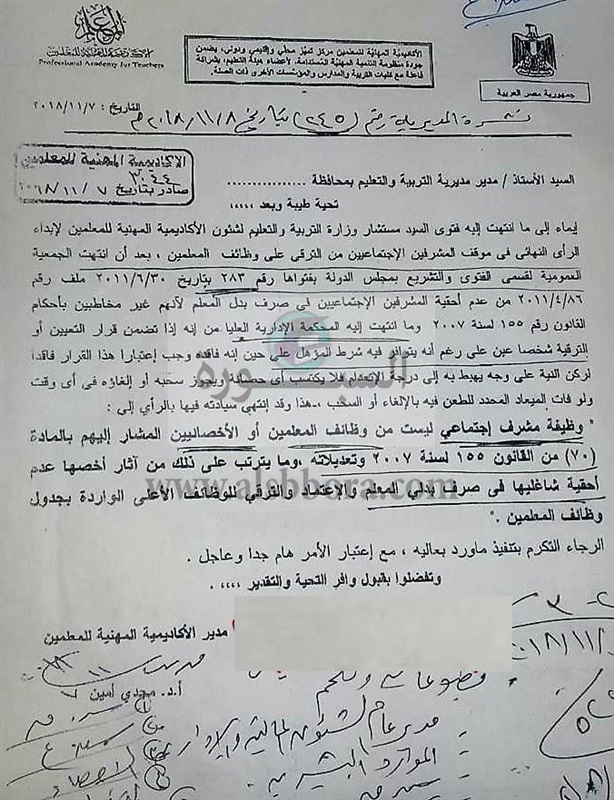 الأكاديمية المهنية للمعلمين
Professional Academy for Teachers
الأكاديمية المهنية للمعلمين مركز تميز محلي وإقليمي ودولي، يضمن
جودة منظومة التنمية المهنية المستدامة، لأعضاء هيئة التعليم، بشراكة
فاعلة مع كليات التربية والمدارس والمؤسسات الأخرى ذات الصلة.
جمهورية مصر العربية
التاريخ: ٢٠١٨/١١/٧
نشرة المديرية رقم (٢٤٥) بتاريخ ٢٠١٨/١١/٨م
الأكاديمية المهنية للمعلمين
٣٠٤٤
صادر بتاريخ ٧ / ١١ / ١٨
السيد الأستاذ / مدير مديرية التربية والتعليم بمحافظة ...............
تحية طيبة وبعد ،،،،،
إيماء إلى ما انتهت إليه فتوى السيد مستشار وزارة التربية والتعليم لشئون الأكاديمية المهنية للمعلمين لإبداء
الرأى النهائى فى موقف المشرفين الإجتماعيين من الترقي على وظائف المعلمين ، بعد أن انتهت الجمعية
العمومية لقسمى الفتوى والتشريع بمجلس الدولة بفتواها رقم ٢٨٣ بتاريخ ٢٠١١/٦/٣٠ ملف رقم
٢٠١١/٤/٨٦ من عدم أحقية المشرفين الإجتماعيين فى صرف بدل المعلم لأنهم غير مخاطبين بأحكام
القانون رقم ١٥٥ لسنة ٢٠٠٧ وما انتهت إليه المحكمة الإدارية العليا من إنه إذا تضمن قرار التعيين أو
الترقية شخصا عين على رغم أنه يتوافر فيه شرط المؤهل على حين إنه فاقده وجب إعتبارها هذا القرار فاقدا
لركن النية على وجه يهبط به إلى درجة الإنعدام فلا يكتسب أى حصانة ويجوز سحبه أو إلغاؤه فى أى وقت
ولو فات الميعاد المحدد للطعن فيه بالإلغاء أو السحب ،، هذا وقد إنتهي سيادته فيها بالرأي إلى :
" وظيفة مشرف إجتماعي ليست من وظائف المعلمين أو الأخصائيين المشار إليهم بالمادة
(٧٠) من القانون ١٥٥ لسنة ٢٠٠٧ وتعديلاته ،وما يترتب على ذلك من آثار أخصها عدم
أحقية شاغليها فى صرف بدلي المعلم والإعتماد والترقي للوظائف الأعلى الواردة بجدول
وظائف المعلمين ."
السبورة
www.alsbbora.com
الرجاء التكرم بتنفيذ ماورد بعاليه ، مع إعتبار الأمر هام جدا وعاجل .
وتفضلوا بقبول وافر التحية والتقدير ،،،،
مدير الأكاديمية المهنية للمعلمين
أ.د. مجدي أمين
مدير عام الشئون المالية والإدارية
الموارد البشرية